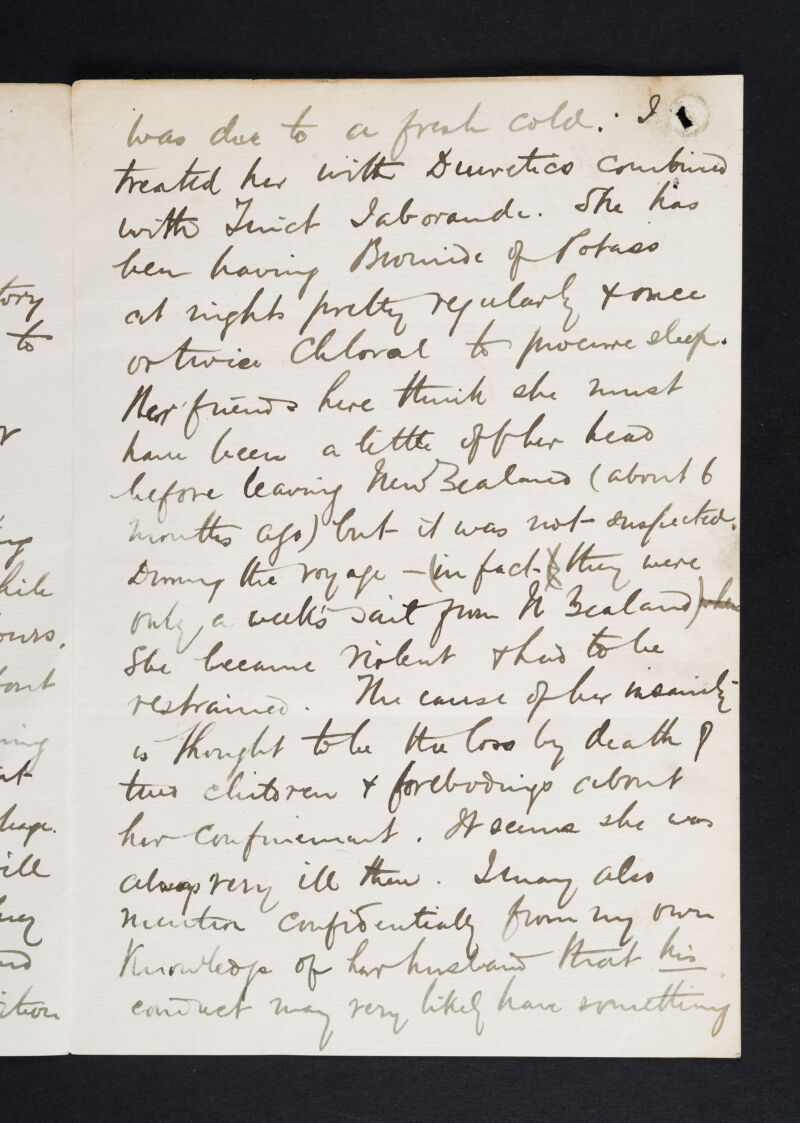 was due to a fresh cold. I
treated her with Diuretics combined
with Tinct Jaborandi. She has
been having Bromide of Potass
at nights pretty regularly & once
or twice Chloral to procure sleep.
Her friends here think she must
have been a little off her head
before leaving New Zealand (about 6
months ago) but it was not suspected.
During the voyage – (in fact they were
only a week's sail from N Zealand)
She became violent & had to be
restrained. The cause of her insanity
is thought to be the loss by death of
two children & forebodings about
her confinement. It seems she was
always very ill then. I may also
mention confidentially from my own
Knowledge of her husband that his
conduct may very likely have something
tory
to
r
hile
ours.
bout
ing
at
ill
hey
nd
ition